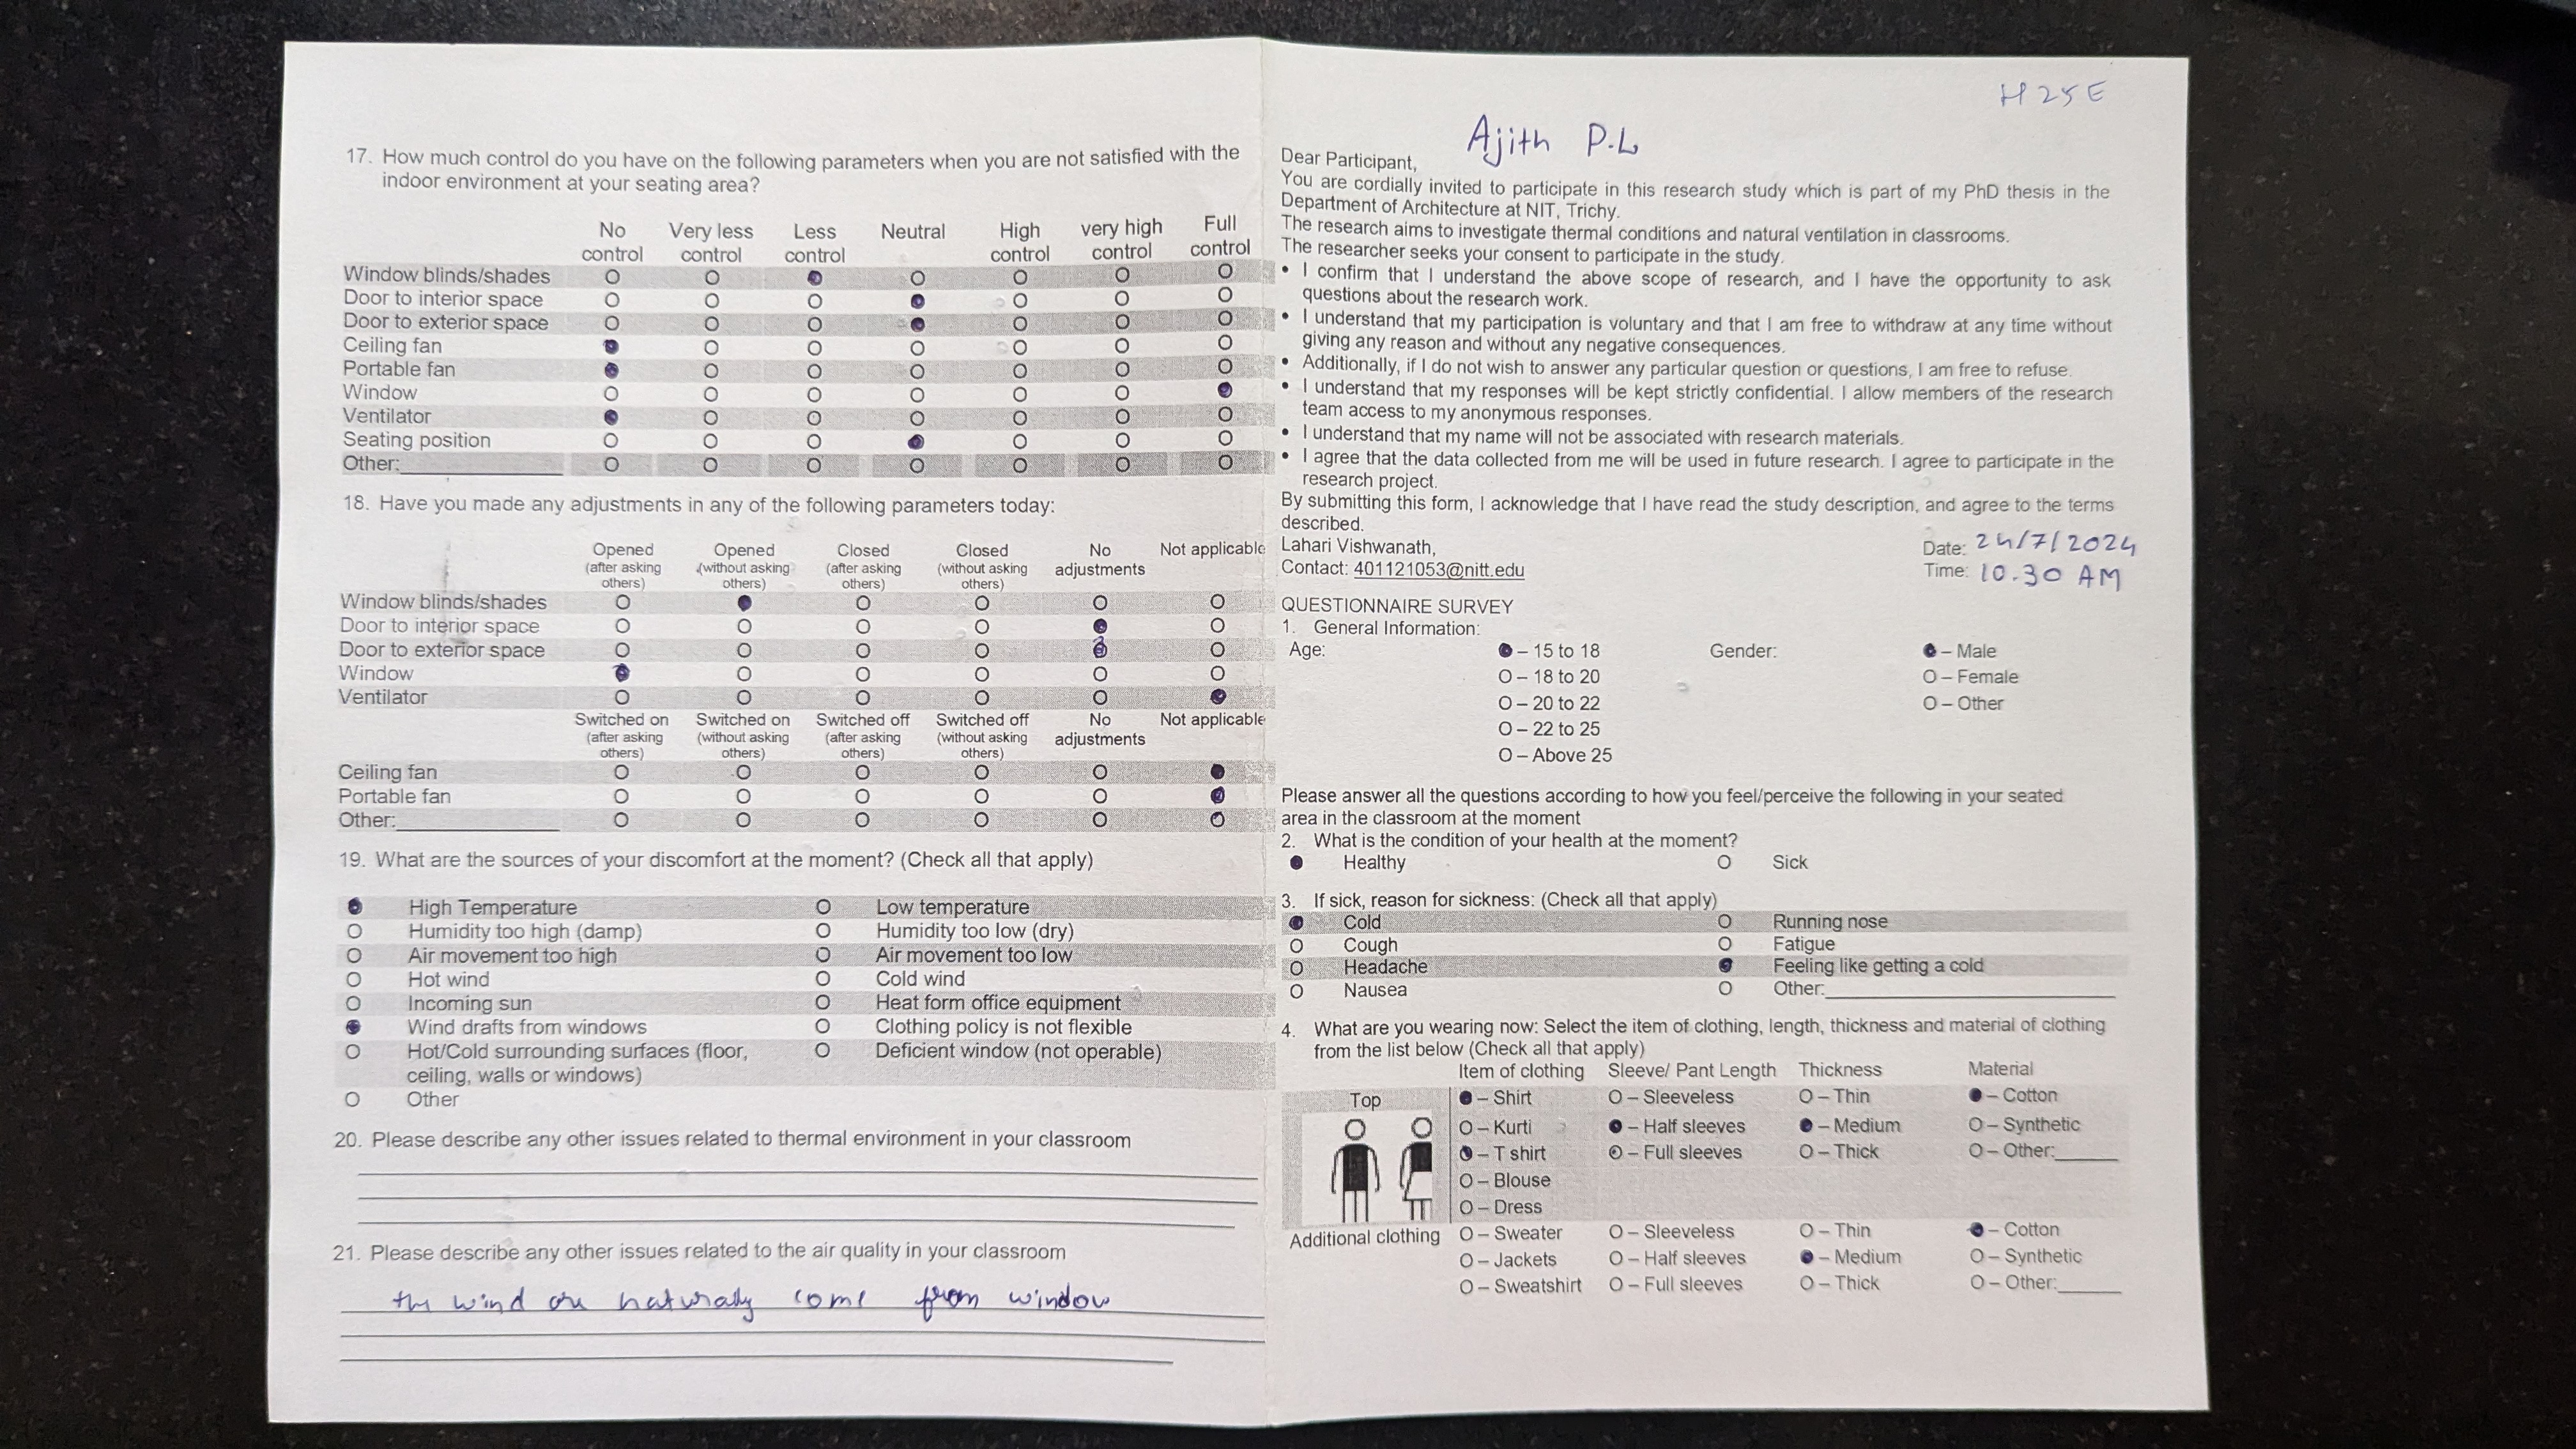 17. How much control do you have on the following parameters when you are not satisfied with the
indoor environment at your seating area?
No control Very less control Less control Neutral High control very high control Full control
Window blinds/shades O O ● O O O O
Door to interior space O O O ● O O O
Door to exterior space O O O ● O O O
Ceiling fan ● O O O O O O
Portable fan ● O O O O O O
Window O O O O O O ●
Ventilator ● O O O O O O
Seating position O O O ● O O O
Other:__________ O O O O O O O
18. Have you made any adjustments in any of the following parameters today:
Opened (after asking others) Opened (without asking others) Closed (after asking others) Closed (without asking others) No adjustments Not applicable
Window blinds/shades O ● O O O O
Door to interior space O O O O ● O
Door to exterior space O O O O ● O
Window ● O O O O O
Ventilator O O O O O ●
Switched on (after asking others) Switched on (without asking others) Switched off (after asking others) Switched off (without asking others) No adjustments Not applicable
Ceiling fan O O O O O ●
Portable fan O O O O O ●
Other:__________ O O O O O O
19. What are the sources of your discomfort at the moment? (Check all that apply)
● High Temperature O Low temperature
O Humidity too high (damp) O Humidity too low (dry)
O Air movement too high O Air movement too low
O Hot wind O Cold wind
O Incoming sun O Heat form office equipment
● Wind drafts from windows O Clothing policy is not flexible
O Hot/Cold surrounding surfaces (floor, O Deficient window (not operable)
ceiling, walls or windows)
O Other
20. Please describe any other issues related to thermal environment in your classroom
21. Please describe any other issues related to the air quality in your classroom
the wind are naturaly come from window
H25E
Ajith P.L
Dear Participant,
You are cordially invited to participate in this research study which is part of my PhD thesis in the
Department of Architecture at NIT, Trichy.
The research aims to investigate thermal conditions and natural ventilation in classrooms.
The researcher seeks your consent to participate in the study.
• I confirm that I understand the above scope of research, and I have the opportunity to ask
questions about the research work.
• I understand that my participation is voluntary and that I am free to withdraw at any time without
giving any reason and without any negative consequences.
• Additionally, if I do not wish to answer any particular question or questions, I am free to refuse.
• I understand that my responses will be kept strictly confidential. I allow members of the research
team access to my anonymous responses.
• I understand that my name will not be associated with research materials.
• I agree that the data collected from me will be used in future research. I agree to participate in the
research project.
By submitting this form, I acknowledge that I have read the study description, and agree to the terms
described.
Lahari Vishwanath, Date: 24/7/2024
Contact: 401121053@nitt.edu Time: 10.30 AM
QUESTIONNAIRE SURVEY
1. General Information:
Age: ● – 15 to 18 Gender: ● – Male
O – 18 to 20 O – Female
O – 20 to 22 O – Other
O – 22 to 25
O – Above 25
Please answer all the questions according to how you feel/perceive the following in your seated
area in the classroom at the moment
2. What is the condition of your health at the moment?
● Healthy O Sick
3. If sick, reason for sickness: (Check all that apply)
● Cold O Running nose
O Cough O Fatigue
O Headache ● Feeling like getting a cold
O Nausea O Other:__________
4. What are you wearing now: Select the item of clothing, length, thickness and material of clothing
from the list below (Check all that apply)
Item of clothing Sleeve/ Pant Length Thickness Material
Top ● – Shirt O – Sleeveless O – Thin ● – Cotton
O – Kurti ● – Half sleeves ● – Medium O – Synthetic
● – T shirt O – Full sleeves O – Thick O – Other:______
O – Blouse
O – Dress
Additional clothing O – Sweater O – Sleeveless O – Thin ● – Cotton
O – Jackets O – Half sleeves ● – Medium O – Synthetic
O – Sweatshirt O – Full sleeves O – Thick O – Other:______